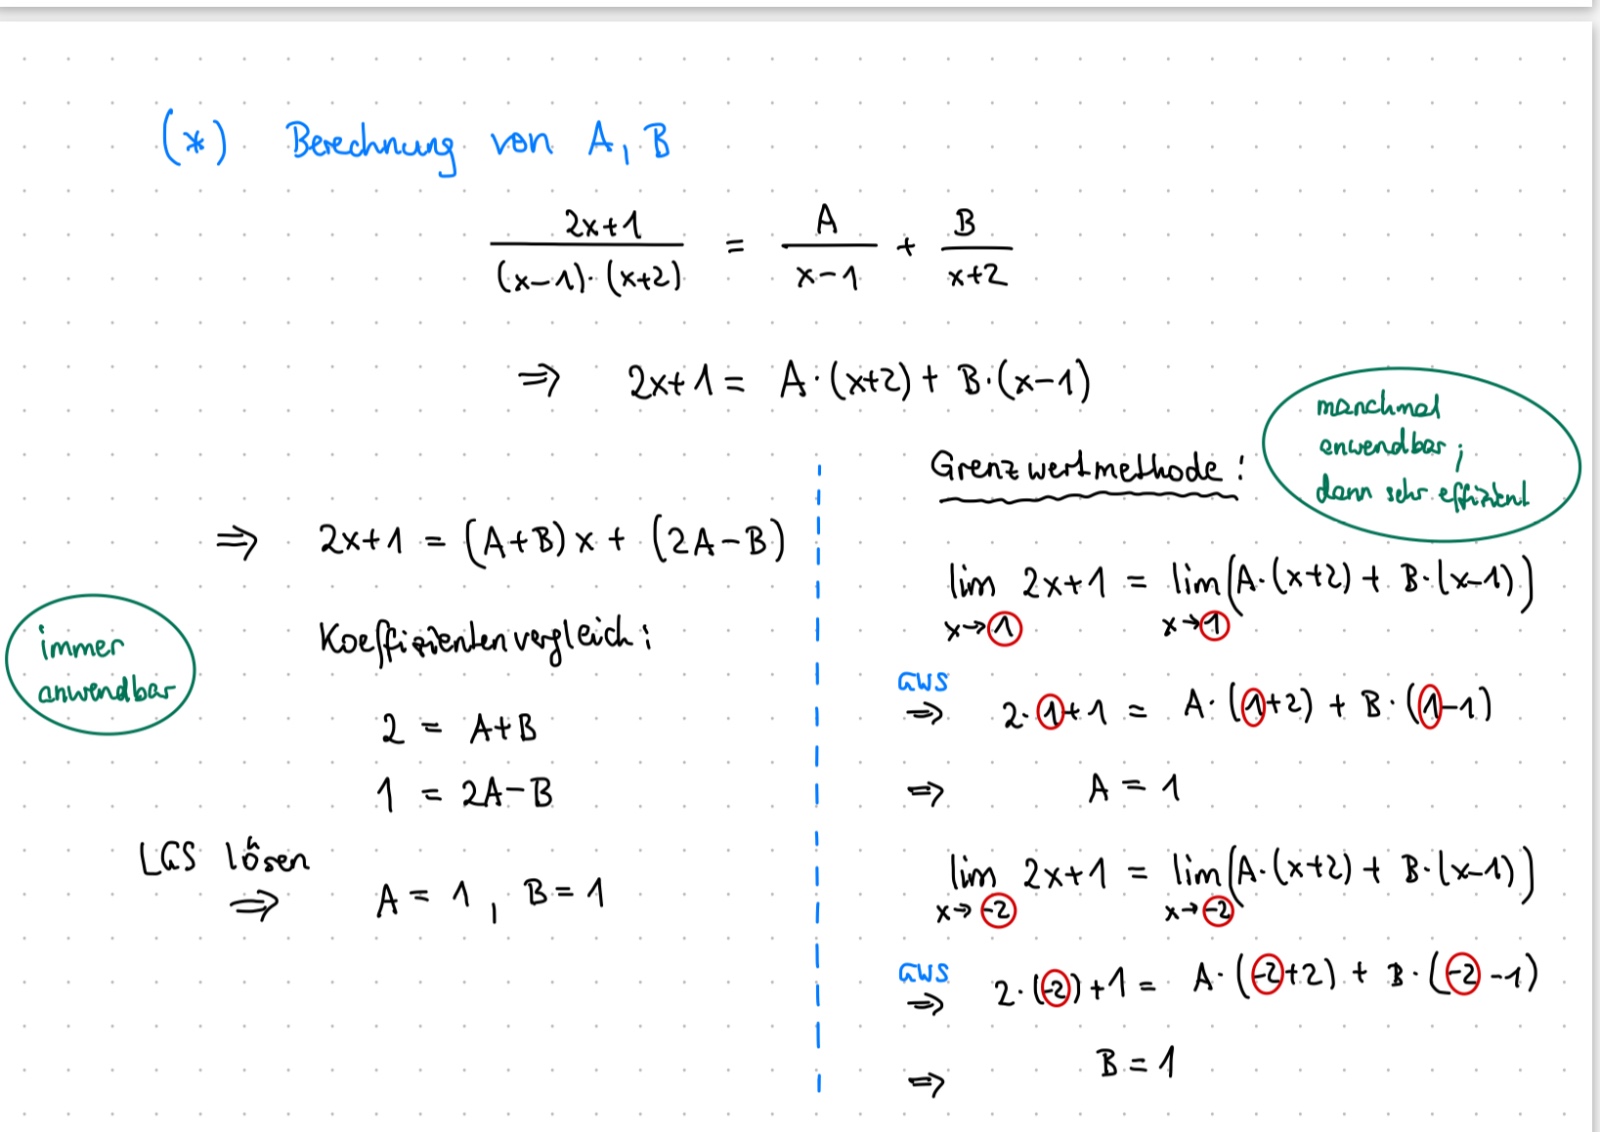 (*) Berechnung von A, B
2x+1 / ((x-1)·(x+2)) = A / (x-1) + B / (x+2)
⇒ 2x+1 = A·(x+2) + B·(x-1)
⇒ 2x+1 = (A+B)x + (2A-B)
immer
anwendbar
Koeffizientenvergleich:
2 = A+B
1 = 2A-B
LGS lösen
⇒ A = 1, B = 1
Grenzwertmethode:
manchmal
anwendbar;
dann sehr effizient
lim 2x+1 = lim (A·(x+2) + B·(x-1))
x→1 x→1
GWS
⇒ 2·1+1 = A·(1+2) + B·(1-1)
⇒ A = 1
lim 2x+1 = lim (A·(x+2) + B·(x-1))
x→-2 x→-2
GWS
⇒ 2·(-2)+1 = A·(-2+2) + B·(-2-1)
⇒ B = 1